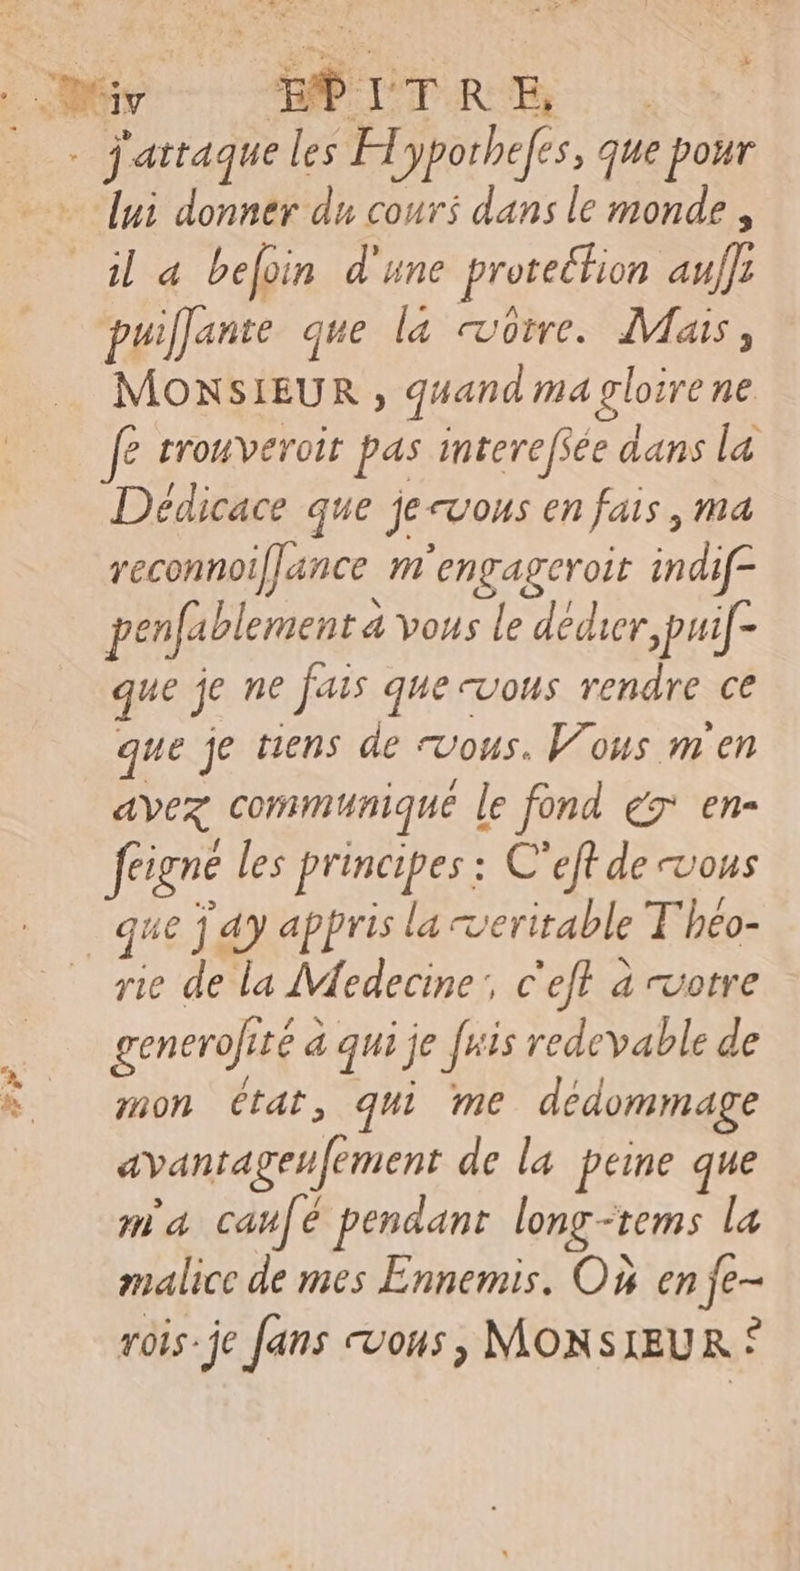 iv EPITRE,
j'attaque les Hypotheses, que pour
lui donner du cours dans le monde,
il a besoin d'une protection aussi
puissante que la vôtre. Mais,
MONSIEUR, quand ma gloire ne
se trouveroit pas interessée dans la
Dédicace que je vous en fais, ma
reconnoissance m'engageroit indis-
pensablement à vous le dédier, puis-
que je ne fais que vous rendre ce
que je tiens de vous. Vous m'en
avez communiqué le fond & en-
seigné les principes : C'est de vous
que j'ay appris la veritable Théo-
rie de la Medecine, c'est à votre
generosité à qui je suis redevable de
mon état, qui me dédommage
avantageusement de la peine que
m'a causé pendant long-tems la
malice de mes Ennemis. Où en se-
rois-je sans vous, MONSIEUR ?